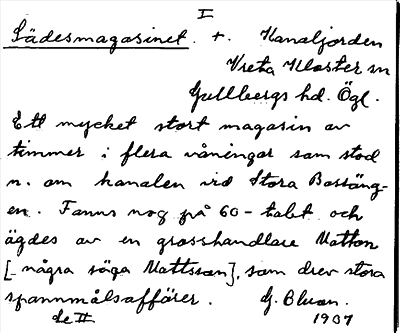 I
Sädesmagasinet. +. Kanaljorden
Vreta Kloster sn
Gullbergs hd. Ögl.
Ett mycket stort magasin av
timmer i flera våningar som stod
n. om kanalen vid Stora Bassäng-
en. Fanns nog på 60-talet och
ägdes av en grosshandlare Matton
[-några säga Mattsson], som drev stora
spannmålsaffärer. G. Bluan.
Se II 1907